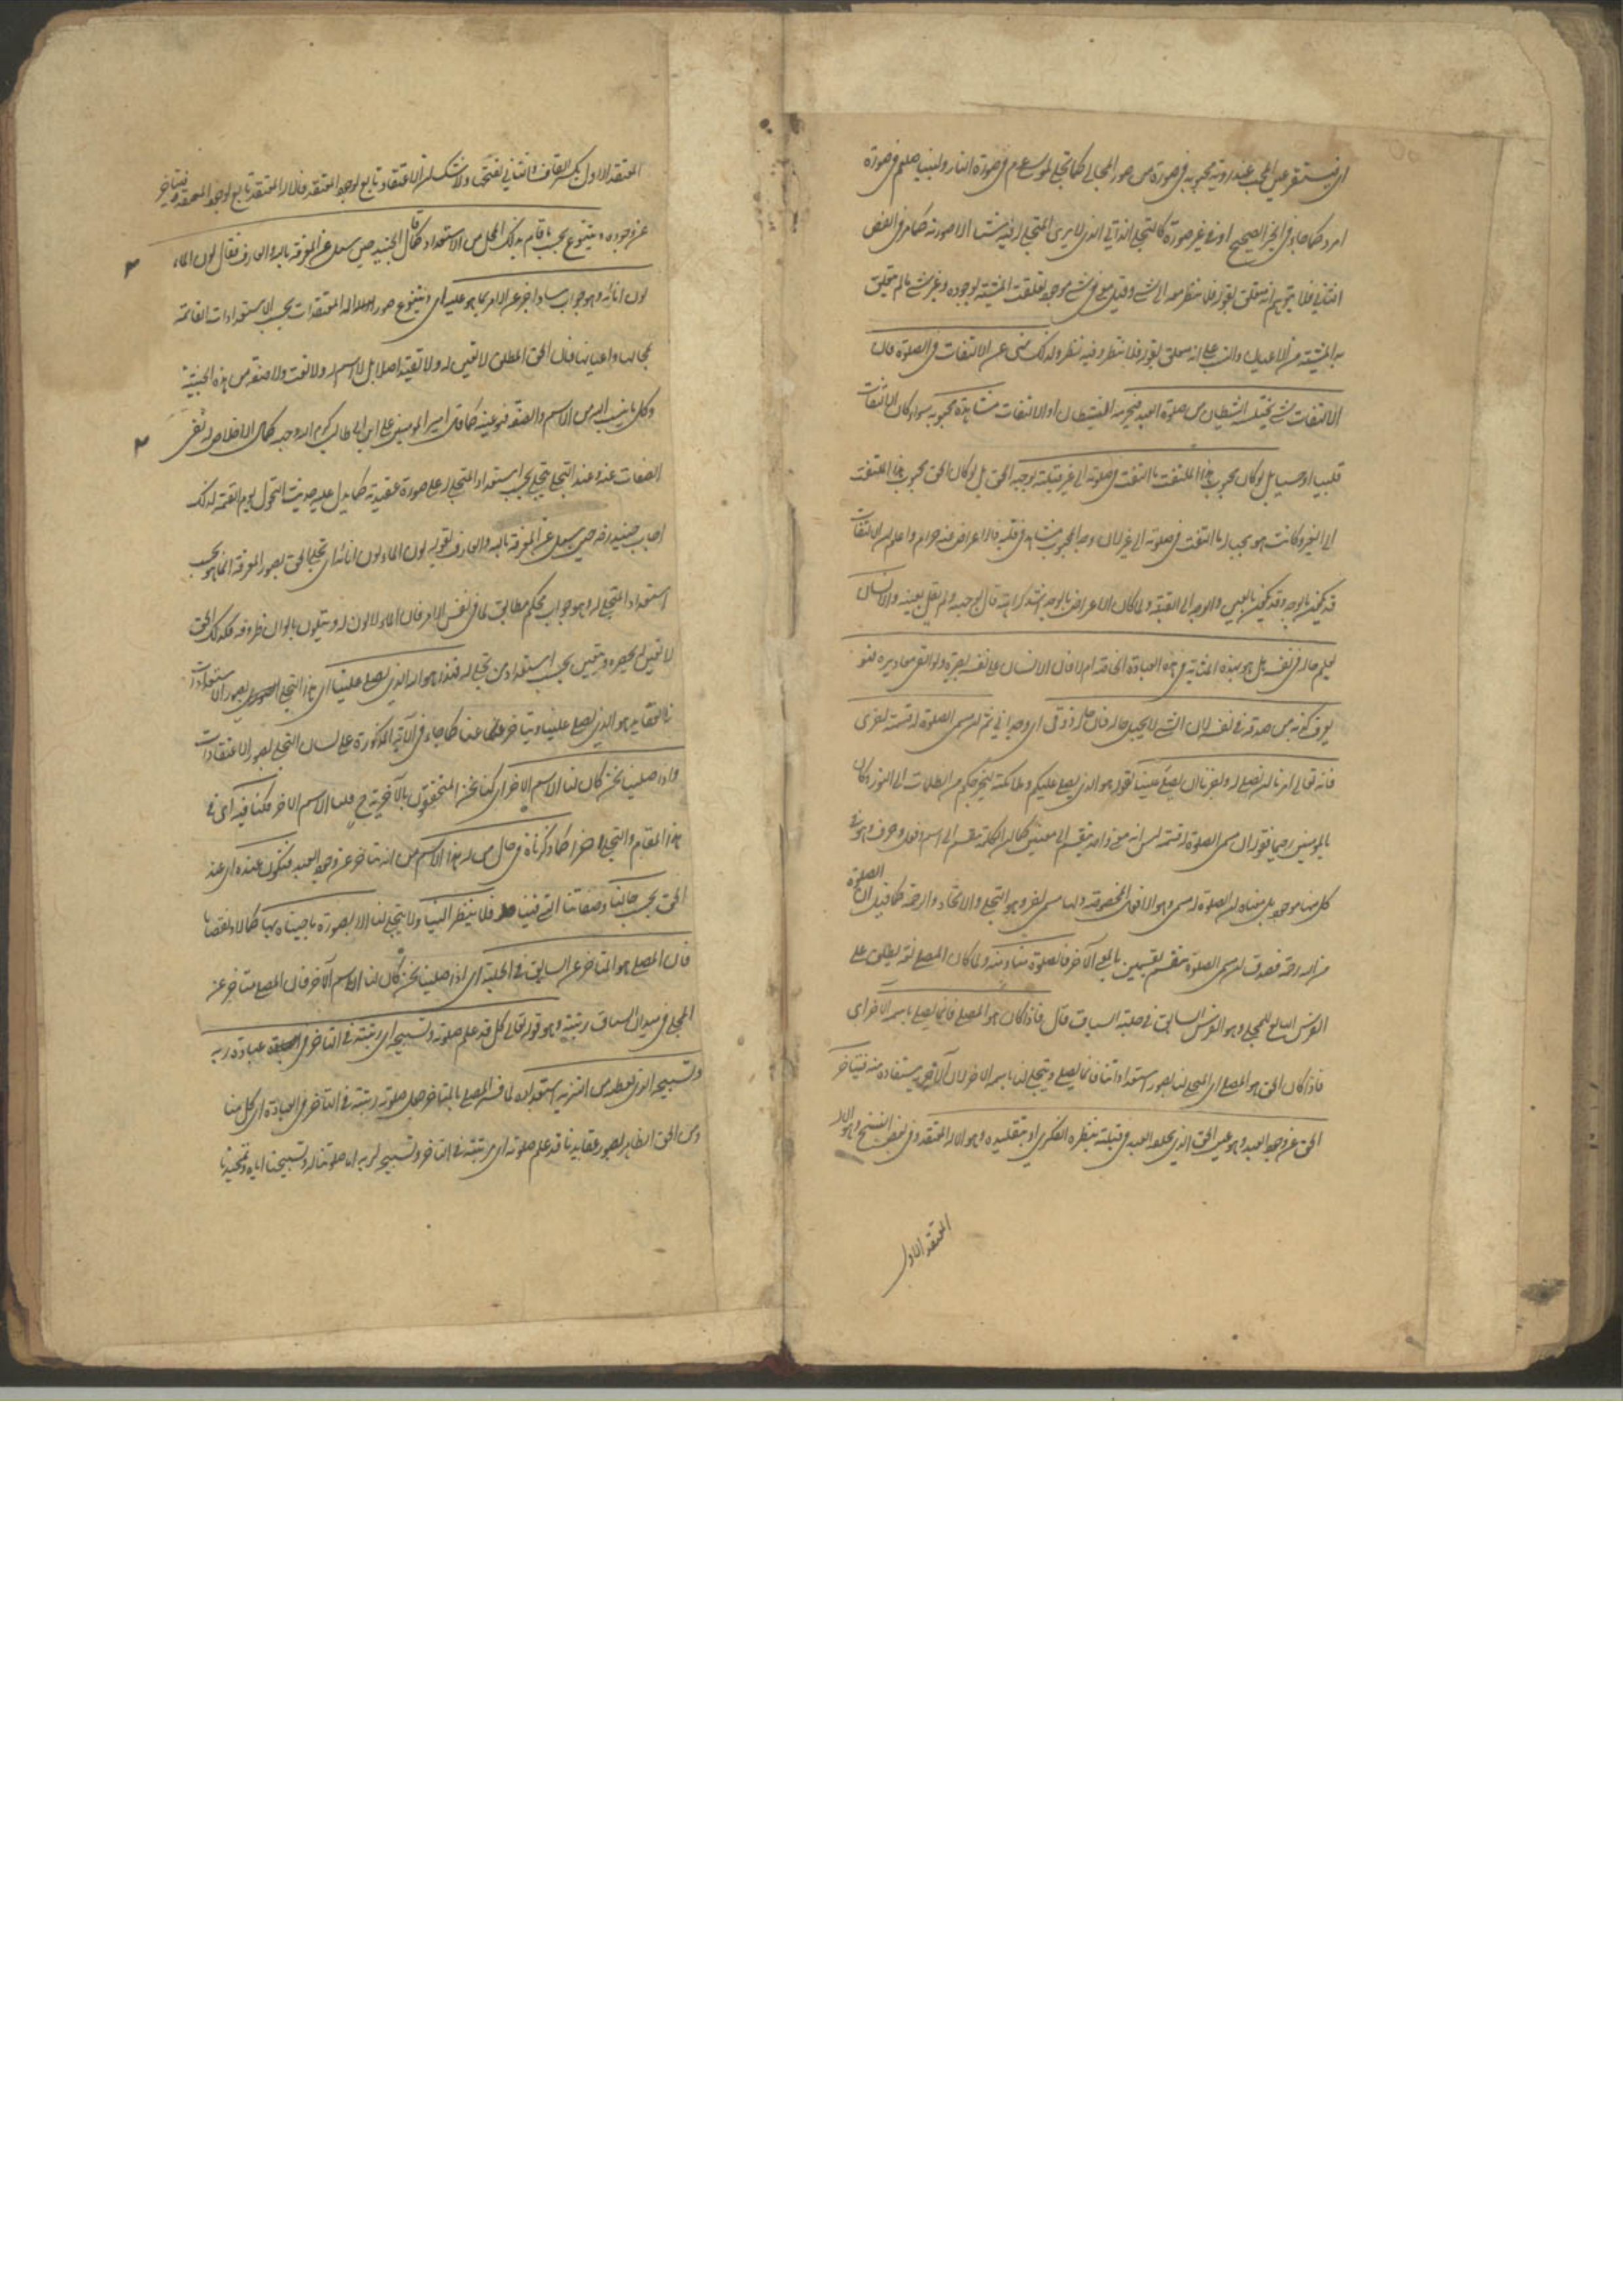 اى فيستقر عين المحب عند رؤية محبوبه في صورة من صور المجالى كما تجلى لموسى عم في صورة النار ولنبينا صلعم في صورة
امرد كما جاء في الخبر الصحيح او في غير صورة كالتجلى الذاتى الذى لا يرى المتجلى له فيه شيئا الا صورته كما مر في الفص
الشيثى فلا يتوهم انه متعلق بقوله فلا ينظر معه الى شى وقيل معه في شى موجود تعلقت المشيئة بوجوده وغير شى ما لم يتعلق
به المشيئة من الاعيان والنسب على انه متعلق بقوله فلا ينظر وفيه نظر ولذلك نهى عن الالتفات في الصلوة فان
الالتفات شى يختلسه الشيطان من صلوة العبد فيحرمه الشيطان او الالتفات مشاهدة محبوبه سواء كان الالتفات
قلبيا او حسيا بل لو كان محبوب هذا الملتفت ما التفت في صلوته الى غير قبلته بوجهه الحق بل لو كان الحق محبوب هذا الملتفت
الى الغير وكانت هو يحب له ما التفت في صلوته الى غيره لان وجه المحبوب مشاهد في قبلته فالاعراض عنه حرام واعلم ان الالتفات
قد يكون بالوجه وقد يكون بالعين والوجه الى القبلة ولما كان الاعراض بالوجه اشد كراهة قال بوجهه ولم يقل بعينه والانسان
يعلم حاله في نفسه هل هو بهذه المثابة في هذه العبادة الخاصة ام لا فان الانسان على نفسه بصيرة ولو القى معاذيره فهو
يعرف كذبه من صدقه في نفسه لان الشى لا يجهل حاله فان حاله ذوقى اى وجدانى ثم ان مسمى الصلوة له قسمة اخرى
فانه تعالى امرنا ان نصلى له واخبرنا ان يصلى علينا بقوله هو الذى يصلى عليكم وملائكته ليخرجكم من الظلمات الى النور وكان
بالمؤمنين رحيما فقوله ان مسمى الصلوة له قسمة ليس انه معنى واحد ينقسم الى معنيين كما ان الكلمة ينقسم الى اسم وفعل وحرف وهو في
كل منها موجود بل معناه ان الصلوة له مسمى وهو الافعال المخصوصة ولها مسمى اخر وهو التجلى والايجاد والرحمة كما قيل ان الصلوة
من الله رحمة فصدق ان مسمى الصلوة منقسم بقسمين بالمعنى الآخر فالصلوة منا ومنه ولما كان المصلى لغة يطلق على
الفرس التابع للمجلى وهو الفرس السابق في حلبة السباق قال فاذا كان هو المصلى فانما يصلى باسمه الآخر اى
فاذا كان الحق هو المصلى اى المتجلى لنا بصور استعداداتنا فانما يصلى ويتجلى لنا باسمه الآخر لان الآخرية مستفادة منه فيتأخر
الحق عن وجود العبد وهو عين الحق الذى يخلقه العبد في قبلته بنظره الفكرى او بتقليده وهو الاله المعتقد وفي بعض النسخ وهو الاله
المعتقد الاول
المعتقد الاول بكسر القاف والثانى بفتحها ولا شك ان الاعتقاد تابع لوجود المعتقد فالاله المعتقد تابع لوجود المعتقد فيتأخر
عن وجوده ويتنوع بحسب ما قام بذلك المحل من الاستعداد كما قال الجنيد حين سئل عن المعرفة بالله والعارف فقال لون الماء
لون انائه وهو جواب ساد اخبر عن الامر بما هو عليه اى ويتنوع صور الاله المعتقدات بحسب الاستعدادات القائمة
بمحالها واعيانها فان الحق المطلق لا تعين له ولا تقيد اصلا بل لا اسم له ولا نعت ولا صفة من هذه الحيثية
وكل ما ينسب اليه من الاسم والصفة فهو عينه كما قال امير المؤمنين على ابن ابى طالب كرم الله وجهه كمال الاخلاص له نفى
الصفات عنه وعند التجلى يتجلى بحسب استعداد المتجلى له على صورة عقيدته كما يدل عليه حديث التحول يوم القيمة لذلك
اجاب جنيد رضه حين سئل عن المعرفة بالله والعارف بقوله لون الماء لون انائه اى تجلى الحق بصور المعرفة انما هو بحسب
استعداد المتجلى له وهو جواب محكم مطابق لما في نفس الامر فان الماء لا لون له ويتلون بالوان ظروفه فكذلك الحق
لا تعين له يحصره ويتعين بحسب استعداد من تجلى له فهذا هو الله الذى يصلى علينا اى هذا التجلى بصور الاستعدادات
والعقايد هو الذى يصلى علينا ويتأخر عنا كما جاء في الآية المذكورة على لسان التجلى بصور الاعتقادات
واذا صلينا نحن كان لنا الاسم الآخر اى كنا نحن المتحققون بالآخرية ح فلنا الاسم الآخر فكنا فيه اى في
هذا المقام والتجلى الآخر كما ذكرناه في حال من له هذا الاسم من انه يتأخر عن وجود العبد فنكون عنده اى عند
الحق بحسب حالنا وصفاتنا التى فينا فلا ينظر الينا ولا يتجلى لنا الا بصورة ما جئناه بها كمالا ونقصا
فان المصلى هو المتأخر عن السابق في الحلبة اى اذا صلينا نحن كان لنا الاسم الآخر فان المصلى متأخر عن
المجلى في ميدان السباق رتبته وهو قوله تعالى كل قد علم صلوته وتسبيحه اى رتبته في التأخر في عبادة ربه
وتسبيحه الذى يعطيه من التنزيه استعداده لما فسر المصلى بالمتأخر جعل صلوته رتبته في التأخر في العبادة اى كل منا
ومن الحق الظاهر بصور عقايدنا قد علم صلوته اى مرتبته في التأخر وتسبيحه لربه اما صلوتنا له وتسبيحنا اياه وتمجيدنا